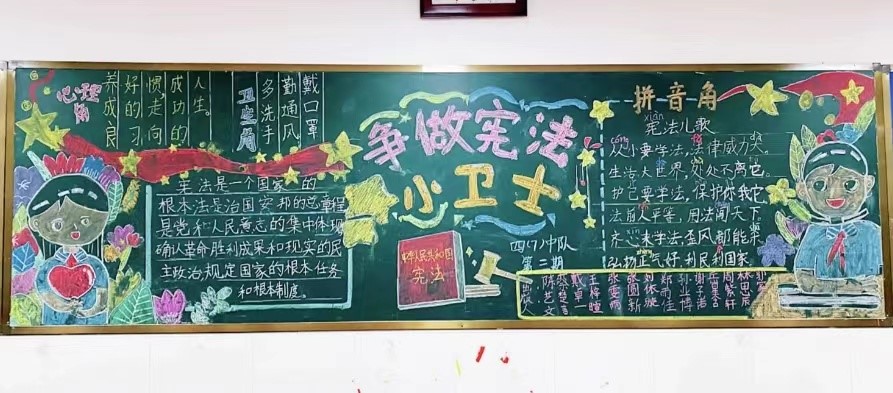 心理角
养成良
好的习
惯走向
成功的
人生。
卫生角
多洗手
勤通风
戴口罩
宪法是一个国家的
根本法是治国安邦的总章程
是党和人民意志的集中体现
确认革命胜利成果和现实的民
主政治规定国家的根本任务
和根本制度。
争做宪法
小卫士
中华人民共和国
宪法
四(7)中队
第二期
拼音角
xiàn
宪法儿歌
cóng
从小要学法,法律威力大。
生活大世界,处处不离它。
护己要学法,保护你我它
法前人平等,用法闯天下。
齐心来学法,歪风都能杀
弘扬正气好,利民利国家
出版人